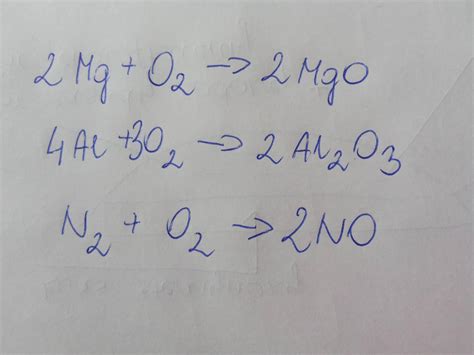 2Mg + O₂ → 2MgO
4Al + 3O₂ → 2Al₂O₃
N₂ + O₂ → 2NO